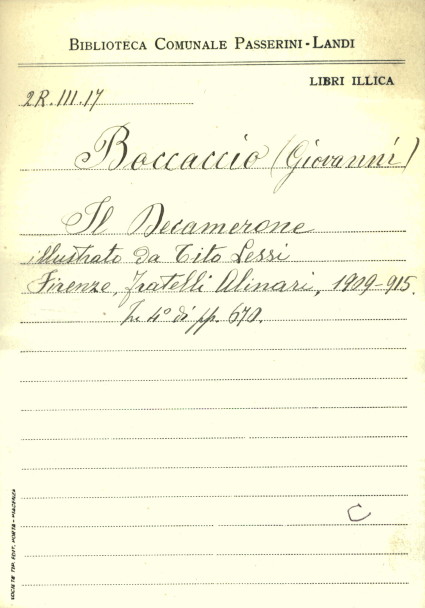 BIBLIOTECA COMUNALE PASSERINI-LANDI
LIBRI ILLICA
2R.III.17
Boccaccio (Giovanni)
Il Decamerone
illustrato da Tito Lessi
Firenze, Fratelli Alinari, 1909-915.
In 4° di pp. 670.
C